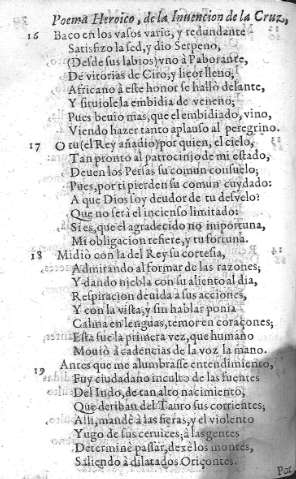 Poema Heroico, de la Inuencion de la Cruz,
16 Baco en los vasos vario, y redundante
Satisfizo la sed, y dio Serpeno,
(Desde sus labios) vno à Paborante,
De vitorias de Ciro, y licor lleno,
Africano à este honor se hallò delante,
Y situiole la embidia de veneno;
Pues beuio mas, que el embidiado, vino,
Viendo hazer tanto aplauso al peregrino.
17 O tu (el Rey añadio) por quien, el cielo,
Tan pronto al patrocinio de mi estado,
Deuen los Persas su comun consuelo;
Pues, por ti pierden su comun cuydado:
A que Dios soy deudor de tu desvelo?
Que no serà el incienso limitado:
Si es, que el agradecido no importuna,
Mi obligacion refiere, y tu fortuna.
18 Midiò con la del Rey su cortesia,
Admirando al formar de las razones,
Y dando niebla con su aliento al dia,
Respiracion deuida a sus acciones,
Y con la vista, y sin hablar ponia
Calma en lenguas, temor en coraçones;
Esta fue la primera vez, que humano
Mouiò à cadencias de la voz la mano.
19 Antes que me alumbrasse entendimiento,
Fuy ciudadano inculto de las fuentes
Del Indo, de tan alto nacimiento,
Que deriban del Tauro sus corrientes;
Alli, mandè à las fieras, y el violento
Yugo de sus ceruices, à las gentes
Determinè passar, dexè los montes,
Saliendo à dilatados Oriçontes.
Por